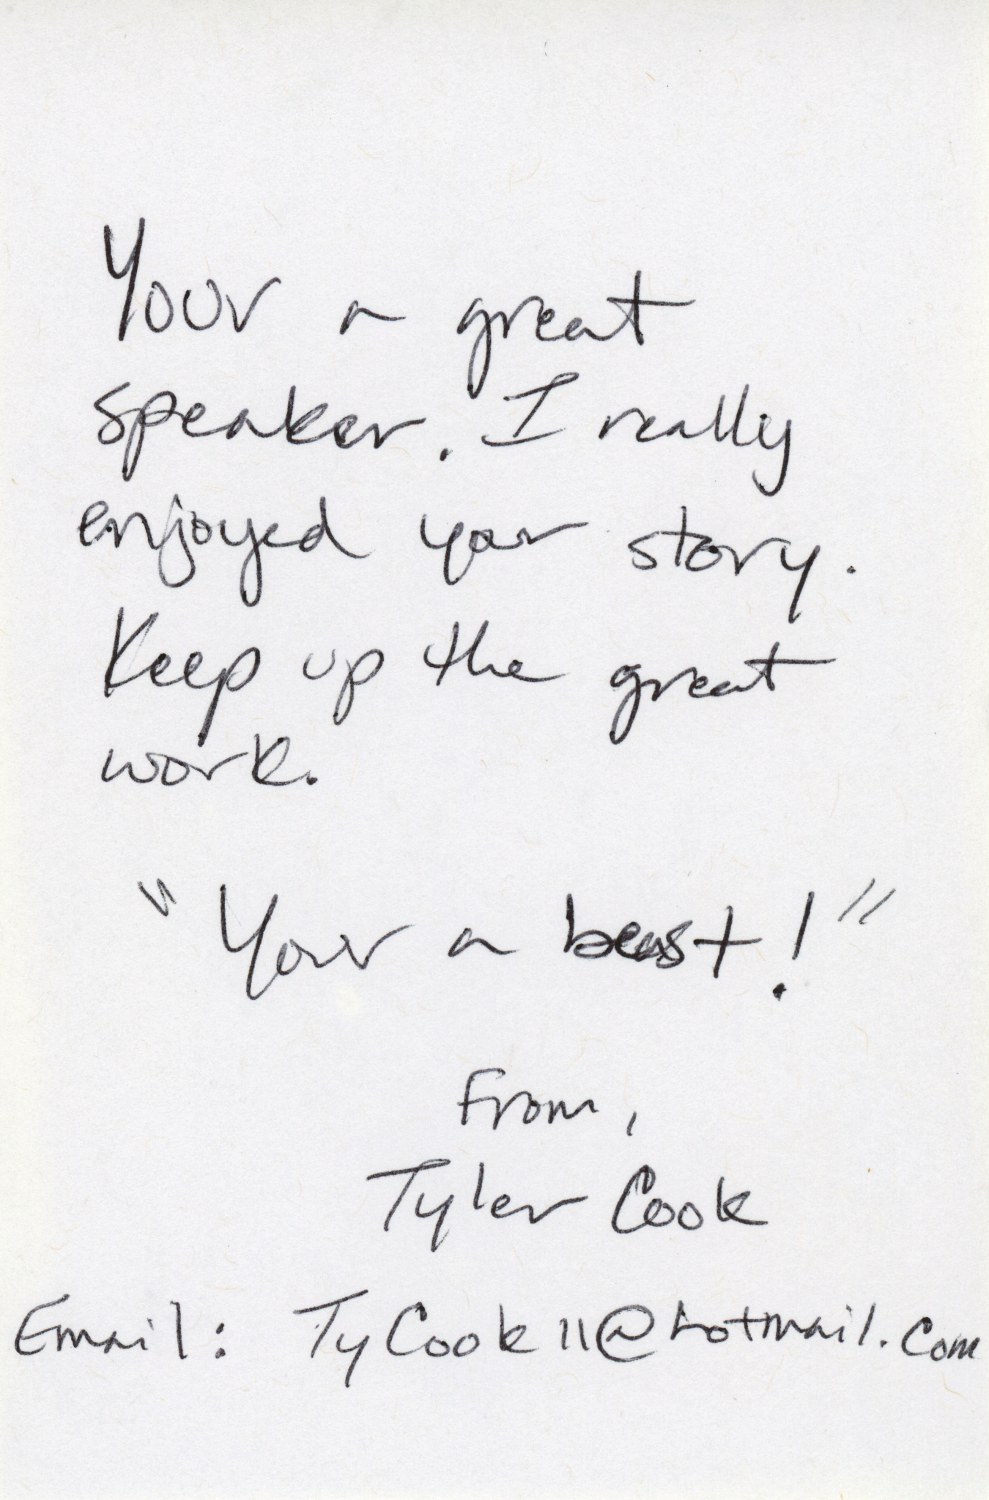 Your a great
speaker. I really
enjoyed your story.
Keep up the great
work.
"Your a beast!"
From,
Tyler Cook
Email: TyCook11@hotmail.com